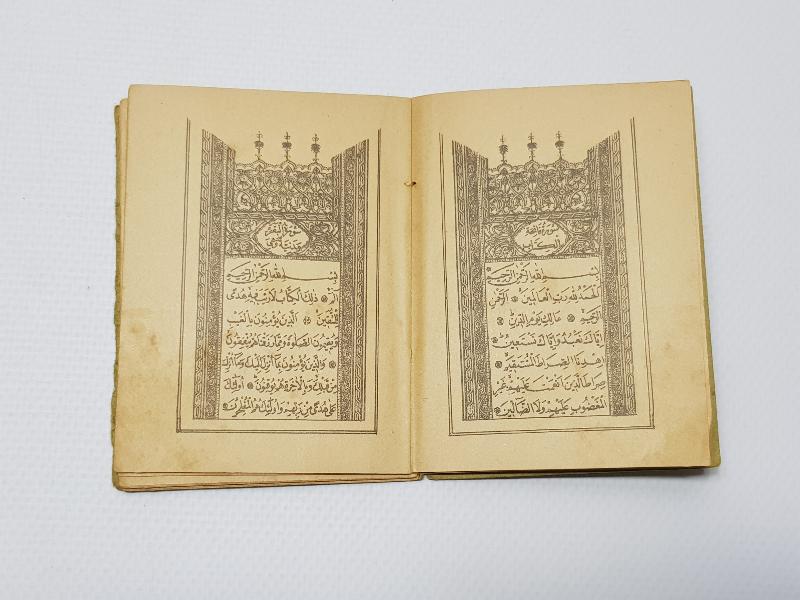 سورة فاتحة
الكتاب
بسم الله الرحمن الرحيم
الحمد لله رب العالمين الرحمن
الرحيم مالك يوم الدين
إياك نعبد وإياك نستعين
إهدنا الصراط المستقيم
صراط الذين أنعمت عليهم غير
المغضوب عليهم ولا الضالين
سورة البقرة
بسم الله الرحمن الرحيم
الم ذلك الكتاب لا ريب فيه هدى
للمتقين الذين يؤمنون بالغيب
ويقيمون الصلوة ومما رزقناهم ينفقون
والذين يؤمنون بما أنزل إليك وما أنزل
من قبلك وبالآخرة هم يوقنون أولئك
على هدى من ربهم وأولئك هم المفلحون